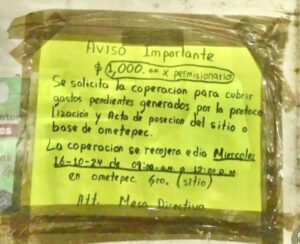 Aviso Importante
$ 1,000.00 x permisionario
Se solicita la coperacion para cubrir
gastos pendientes generados por la protoco
lización y Acta de posecion del sitio o
base de ometepec.
La coperacion se recojera edia Miercoles
16-10-24 de 09:00 a.m a 12:00 p.m.
en ometepec. Gro. (sitio)
Att. Mesa Directiva